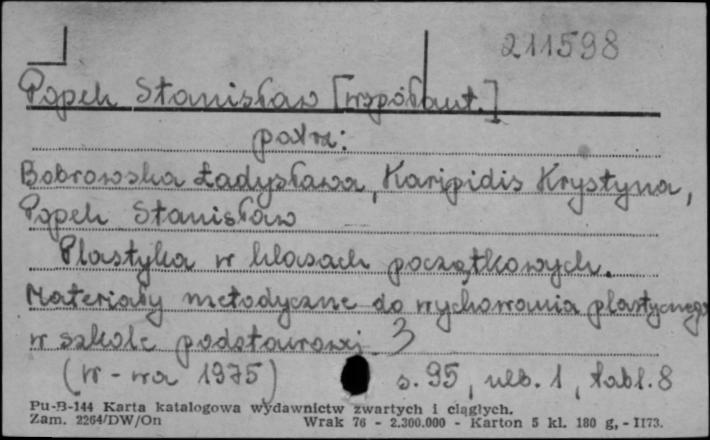 211598
Popek Stanisław [współaut.]
patrz:
Bobrowska Ładysława, Karipidis Krystyna,
Popek Stanisław
Plastyka w klasach początkowych.
Materiały metodyczne do wychowania plastycznego
w szkole podstawowej 3
(W-wa 1975) s. 95, nlb. 1, tabl. 8
Pu-B-144 Karta katalogowa wydawnictw zwartych i ciągłych.
Zam. 2264/DW/On Wrak 76 - 2.300.000 - Karton 5 kl. 180 g, - I173.